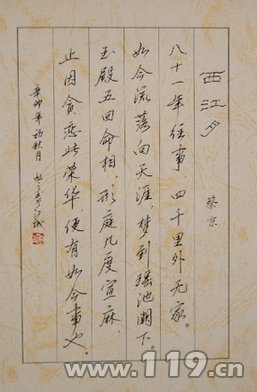 西江月
蔡京
八十一年往事，四千里外无家。
如今流落向天涯，梦到瑶池阙下。
玉殿五回命相，形庭几度宣麻，
止因贪恋此荣华，便有如今事也。
辛卯年初秋月
www.119.cn